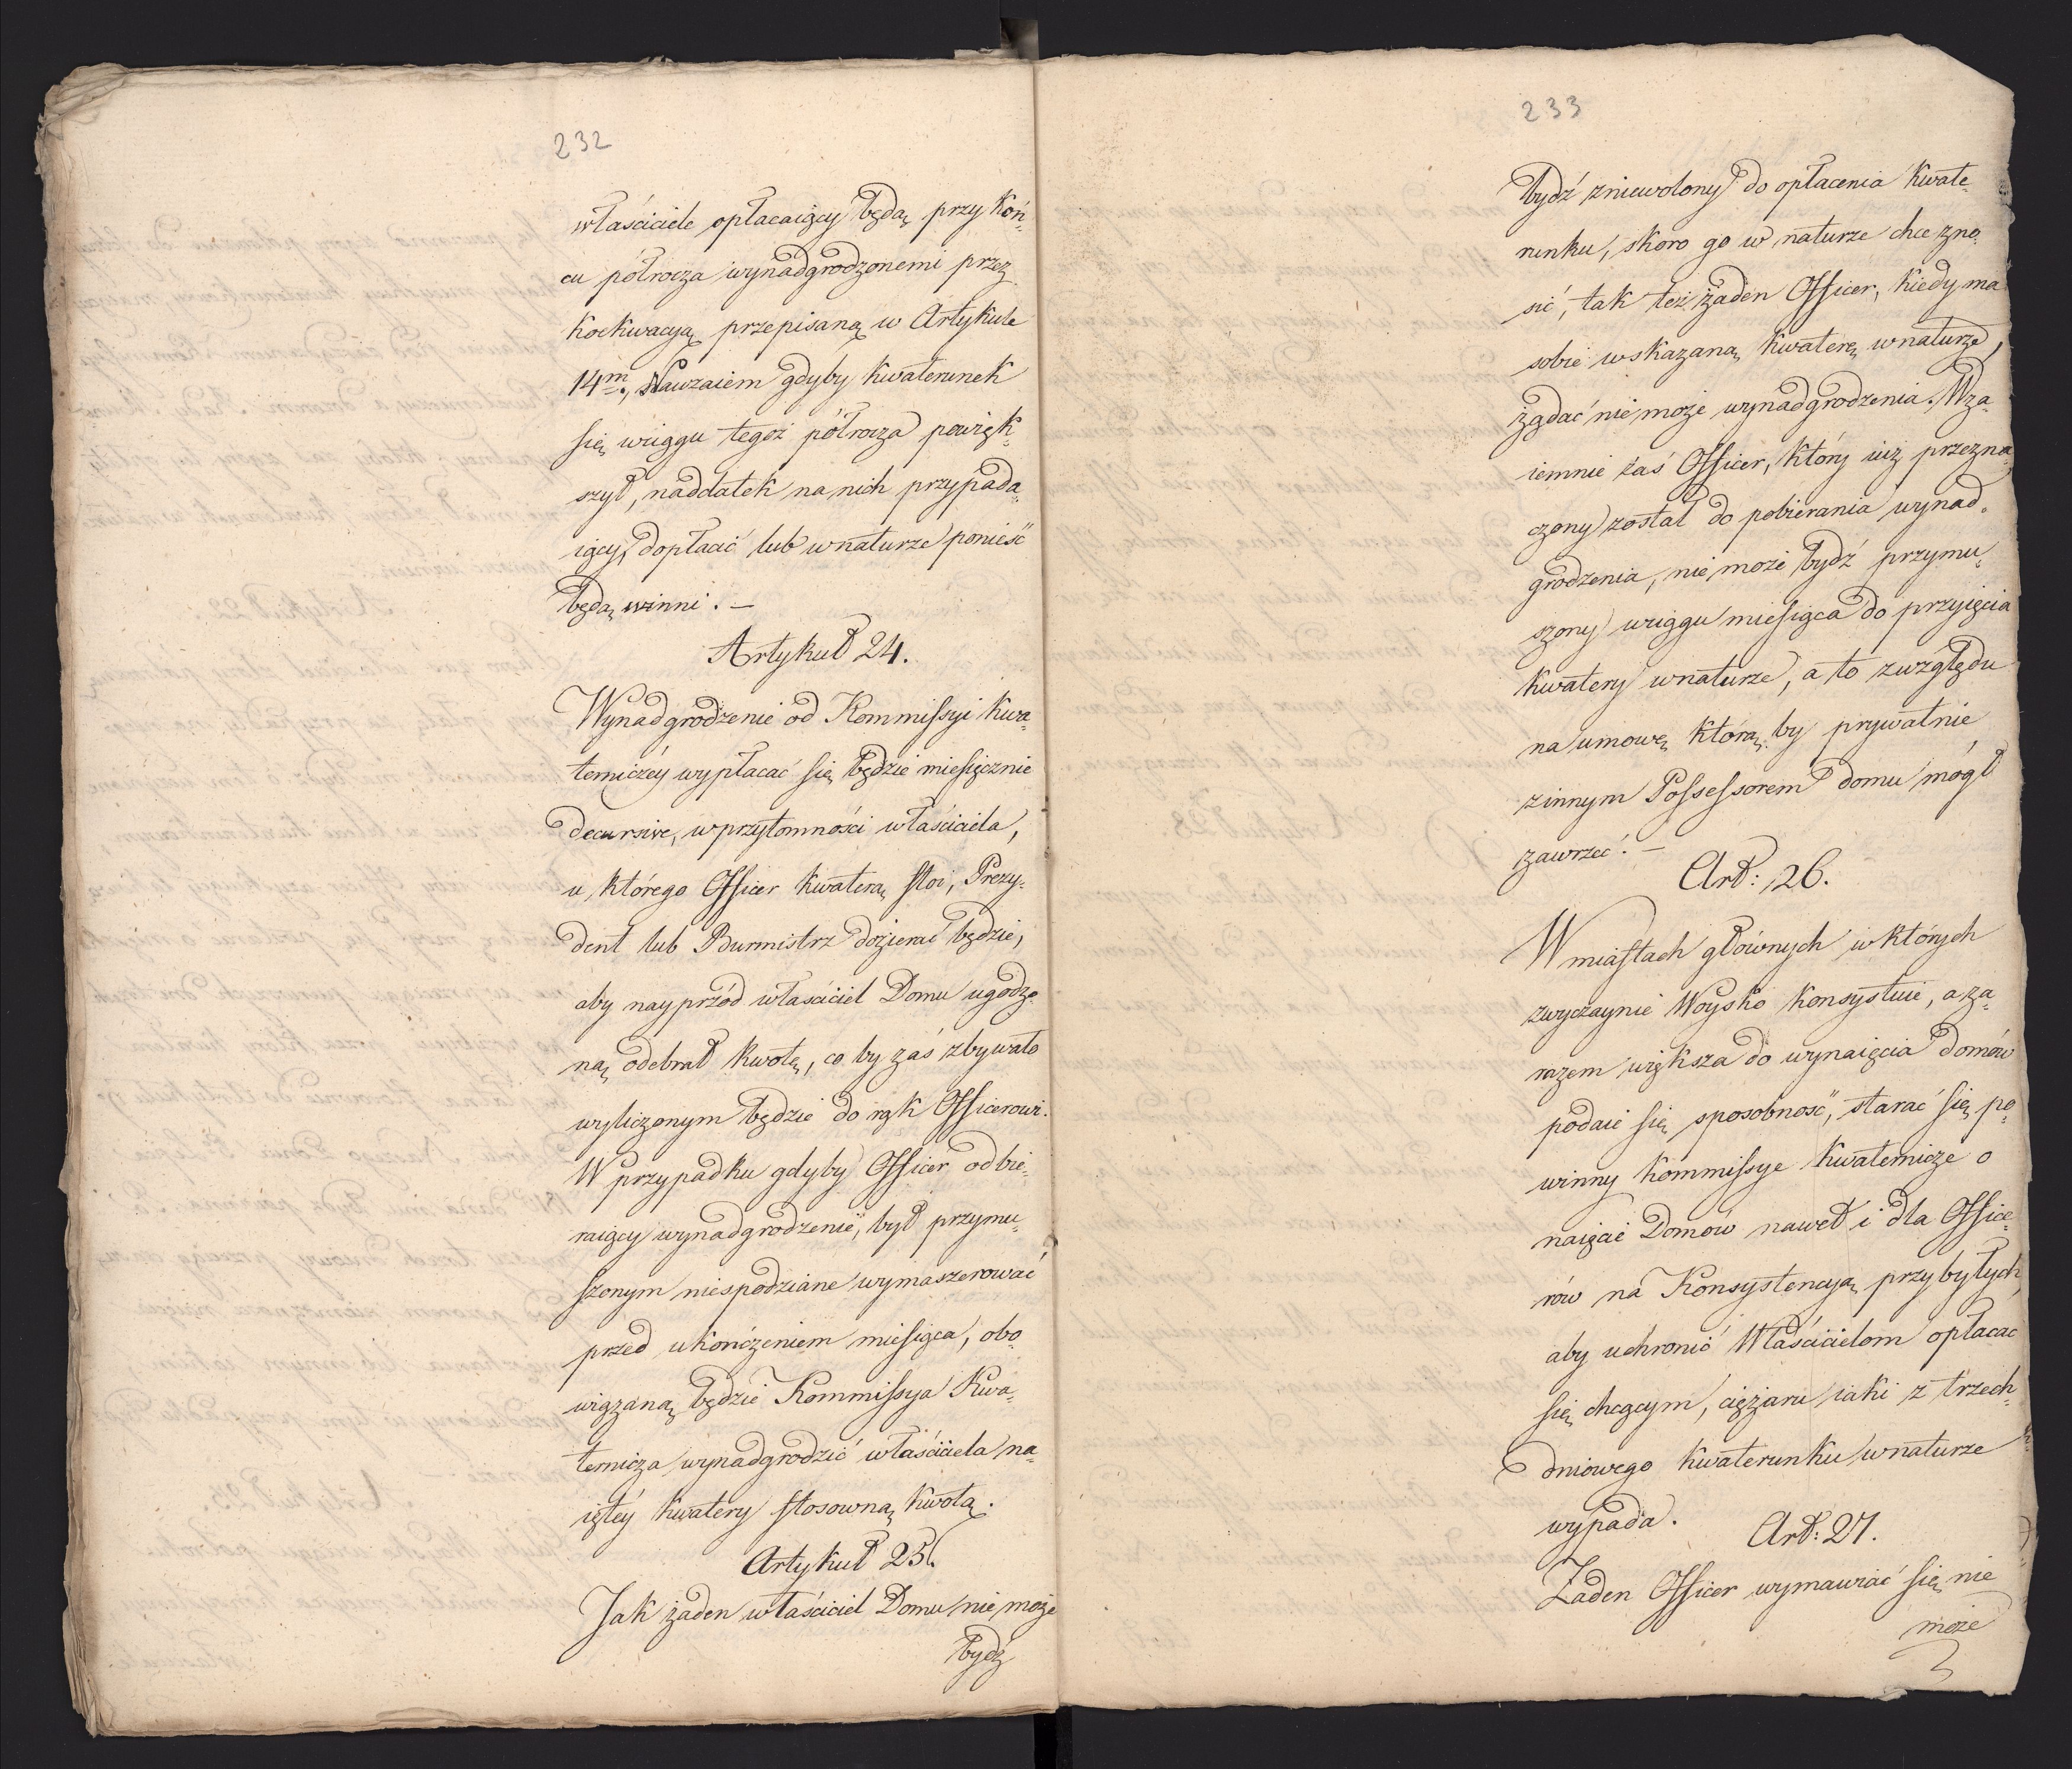 232
właściciele opłacaiący będą przy koń„
cu półrocza wynadgrodzonemi przez
koekwacyą przepisaną w Artykule
14m., Nawzaiem gdyby kwaterunek
się wciągu tegoż półrocza powięk„
szył, naddatek na nich przypada„
iący, dopłacić lub wnaturze ponieść
będą winni. —
Artykuł 24.
Wynadgrodzenie od Kommissyi kwa„
terniczéy wypłacać się będzie miesięcznie
decursive, wprzytomności właściciela,
u którego Officer kwaterą stoi, Prezy„
dent lub Burmistrz dozierać będzie,
aby nayprzód właściciel Domu ugodzo„
ną odebrał kwotę, co by zaś zbywało
wyliczonym będzie do rąk Officerowi.
W przypadku gdyby Officer odbie„
raiący wynadgrodzenie, był przymu„
szonym niespodziane wymaszerować
przed ukończeniem miesiąca, obo„
wiązaną będzie Kommissya Kwa„
ternicza wynadgrodzić właściciela na„
iętéy kwatery stosowną kwotą.
Artykuł 25.
Jak żaden właściciel Domu nie może
bydź
233
bydź zniewolony do opłacenia kwate„
runku, skoro go w naturze chce zno„
sić, tak też żaden Officer, kiedy ma
sobie wskazaną kwaterę wnaturze,
żądać nie może wynadgrodzenia. Wza„
iemnie zaś Officer, który iuż przezna„
czony został do pobierania wynad„
grodzenia, nie może bydź przymu„
szony wciągu miesiąca do przyięcia
kwatery wnaturze, a to zwzględu
na umowę którą by prywatnie
zinnym Possessorem domu mógł
zawrzeć. —
Art: 26.
W miastach głównych wktórych
zwyczaynie Woysko konsystuie, a za„
razem większa do wynaięcia domów
podaie się sposobność, starać się po„
winny Kommissye kwaternicze o
naięcie Domów nawet i dla Office„
rów na Konsystencyą przybyłych,
aby uchronić Właścicielom opłacac
się chcącym, ciężaru iaki z trzech„
dniowego kwaterunku wnaturze
wypada.
Art: 27.
Żaden Officer wymawiać się nie
może